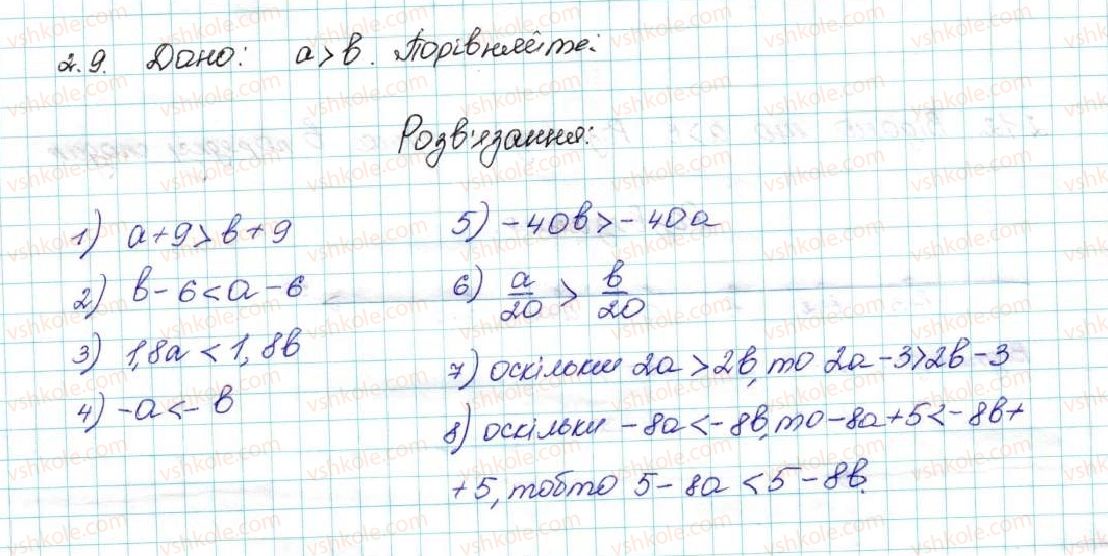 2.9. Дано: a > b. Порівняйте:
Розв'язання:
1) a + 9 > b + 9
2) b - 6 < a - 6
3) 1,8a < 1,8b
4) -a < -b
5) -40b > -40a
6) a/20 > b/20
7) оскільки 2a > 2b, то 2a - 3 > 2b - 3
8) оскільки -8a < -8b, то -8a + 5 < -8b +
+ 5, тобто 5 - 8a < 5 - 8b.